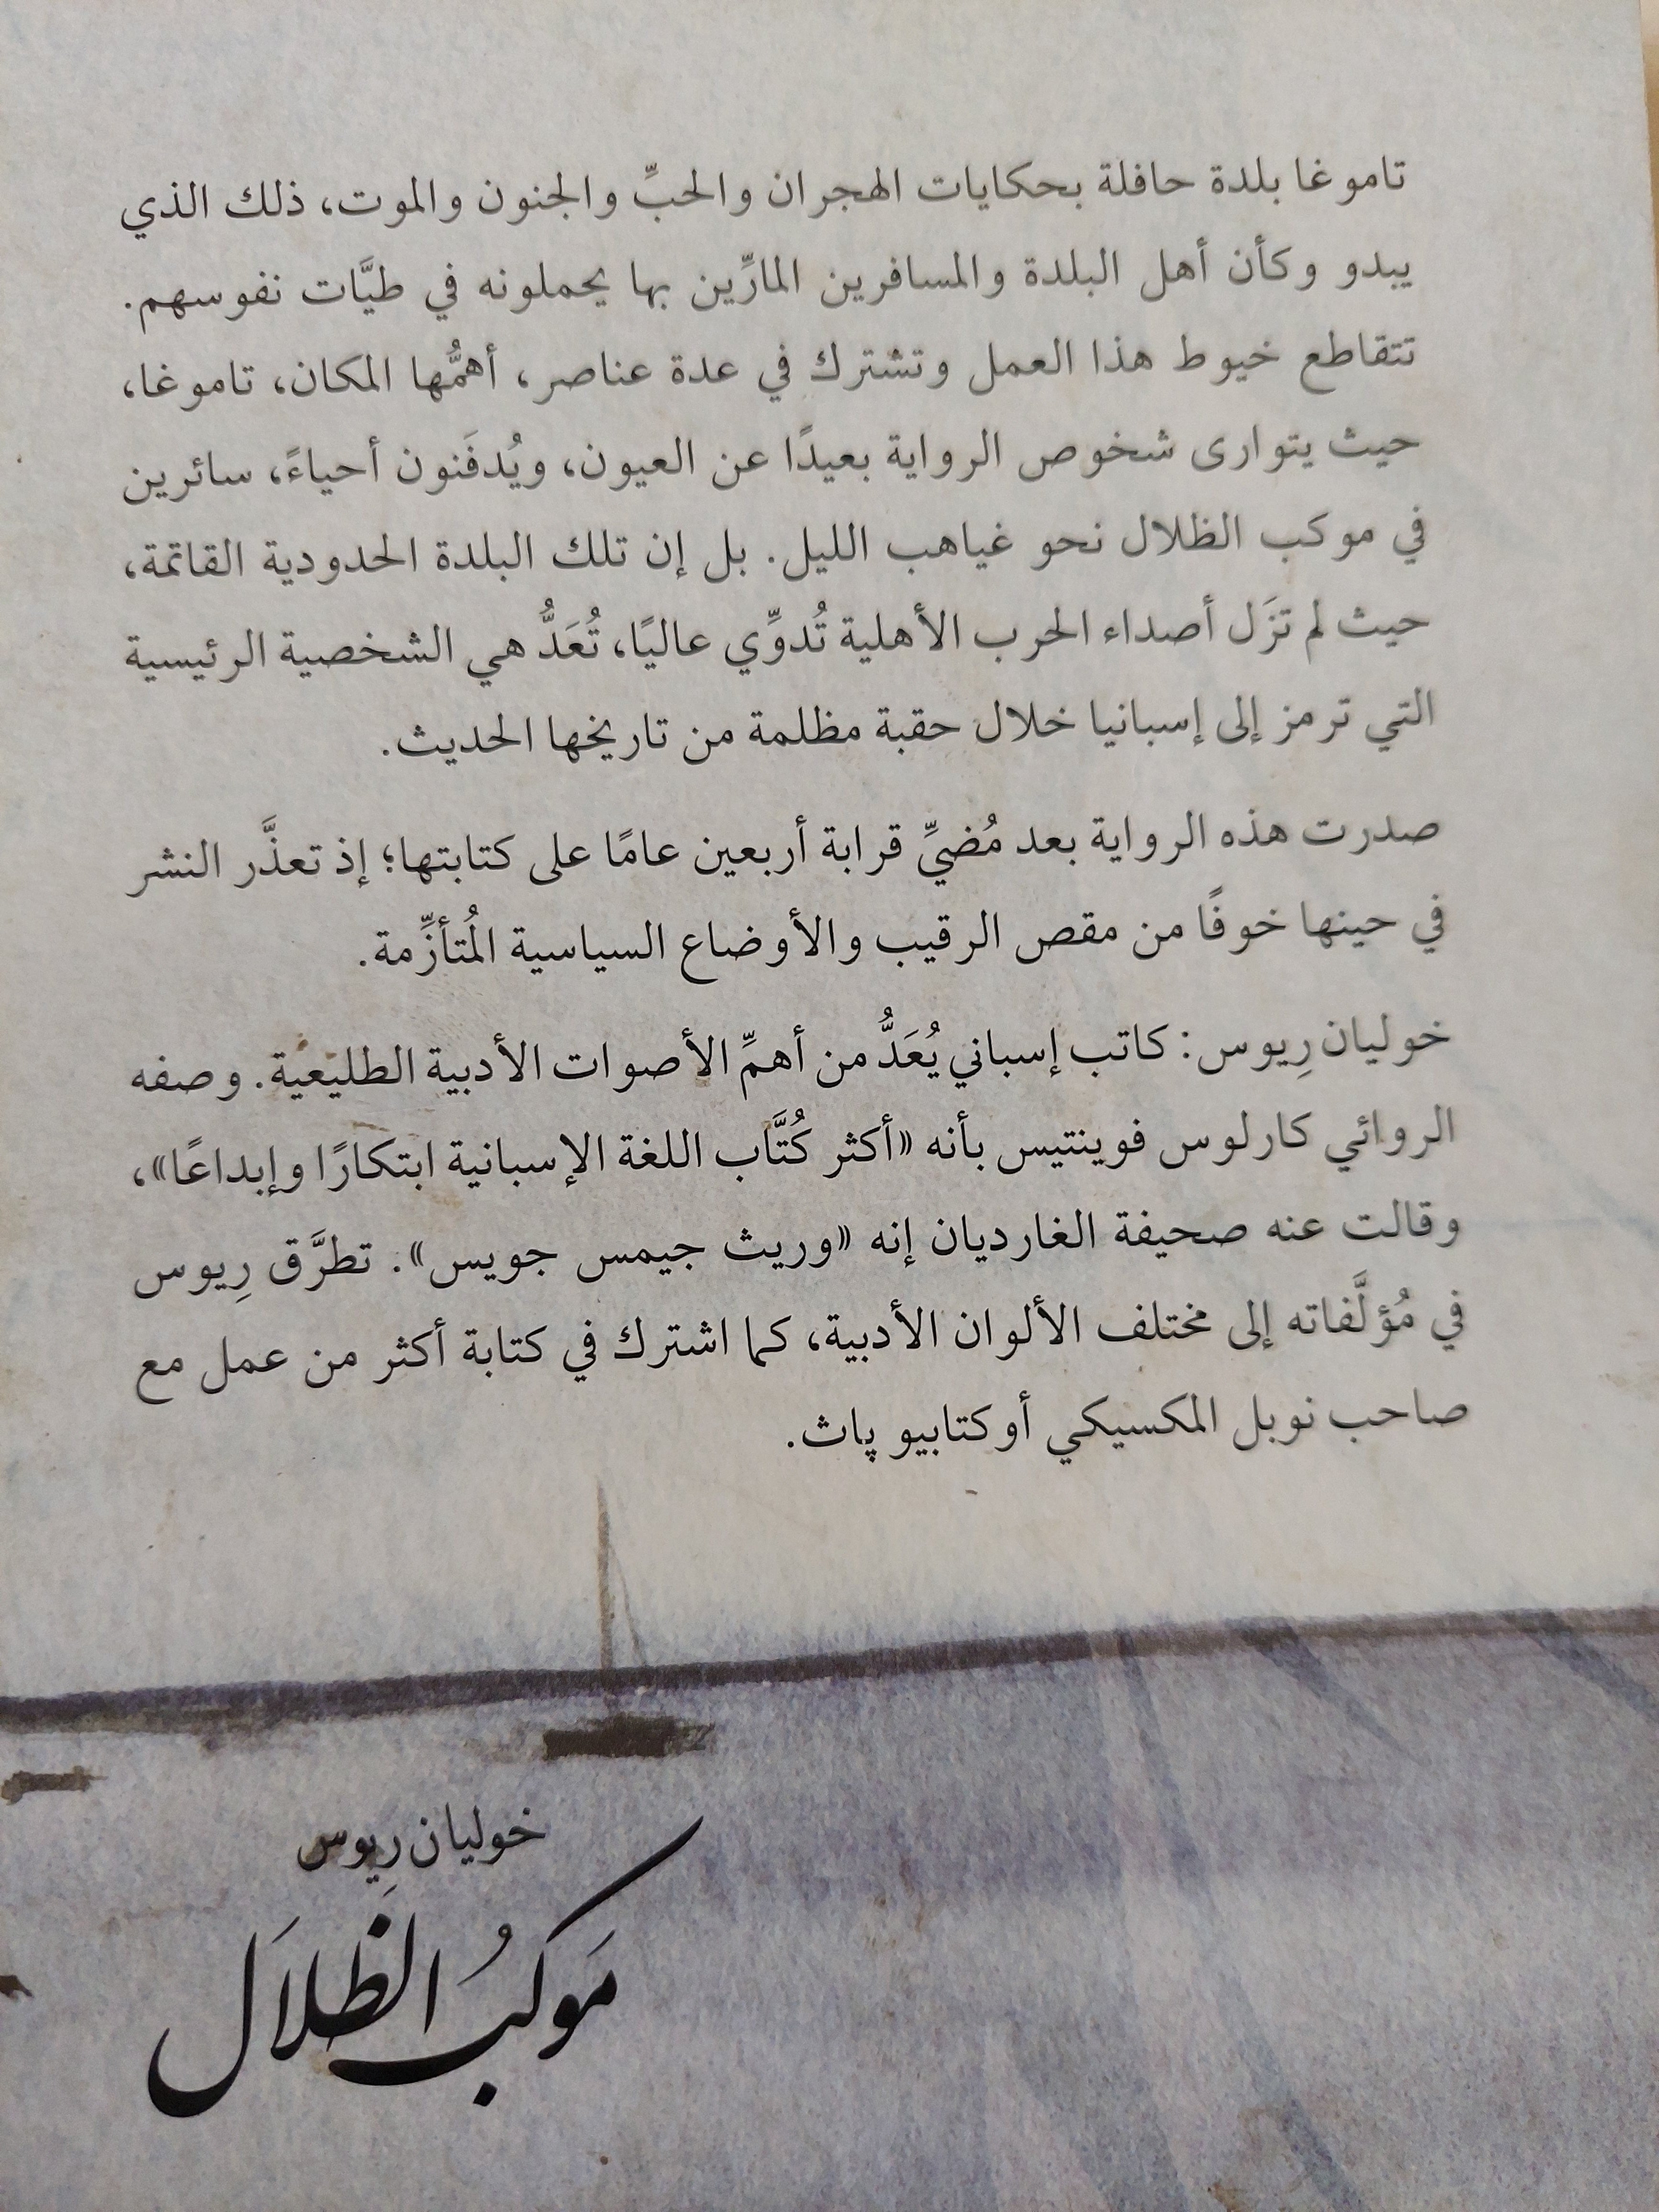 تاموغا بلدة حافلة بحكايات الهجران والحبِّ والجنون والموت، ذلك الذي
يبدو وكأن أهل البلدة والمسافرين المارِّين بها يحملونه في طيَّات نفوسهم.
تتقاطع خيوط هذا العمل وتشترك في عدة عناصر، أهمُّها المكان، تاموغا،
حيث يتوارى شخوص الرواية بعيدًا عن العيون، ويُدفَنون أحياءً، سائرين
في موكب الظلال نحو غياهب الليل. بل إن تلك البلدة الحدودية القاتمة،
حيث لم تزَل أصداء الحرب الأهلية تُدوِّي عاليًا، تُعَدُّ هي الشخصية الرئيسية
التي ترمز إلى إسبانيا خلال حقبة مظلمة من تاريخها الحديث.
صدرت هذه الرواية بعد مُضيِّ قرابة أربعين عامًا على كتابتها؛ إذ تعذَّر النشر
في حينها خوفًا من مقص الرقيب والأوضاع السياسية المُتأزِّمة.
خوليان رِيوس: كاتب إسباني يُعَدُّ من أهمِّ الأصوات الأدبية الطليعية. وصفه
الروائي كارلوس فوينتيس بأنه «أكثر كُتَّاب اللغة الإسبانية ابتكارًا وإبداعًا»،
وقالت عنه صحيفة الغارديان إنه «وريث جيمس جويس». تطرَّق رِيوس
في مُؤلَّفاته إلى مختلف الألوان الأدبية، كما اشترك في كتابة أكثر من عمل مع
صاحب نوبل المكسيكي أوكتابيو پاث.
خوليان رِيوس
مَوكبُ الظلَال